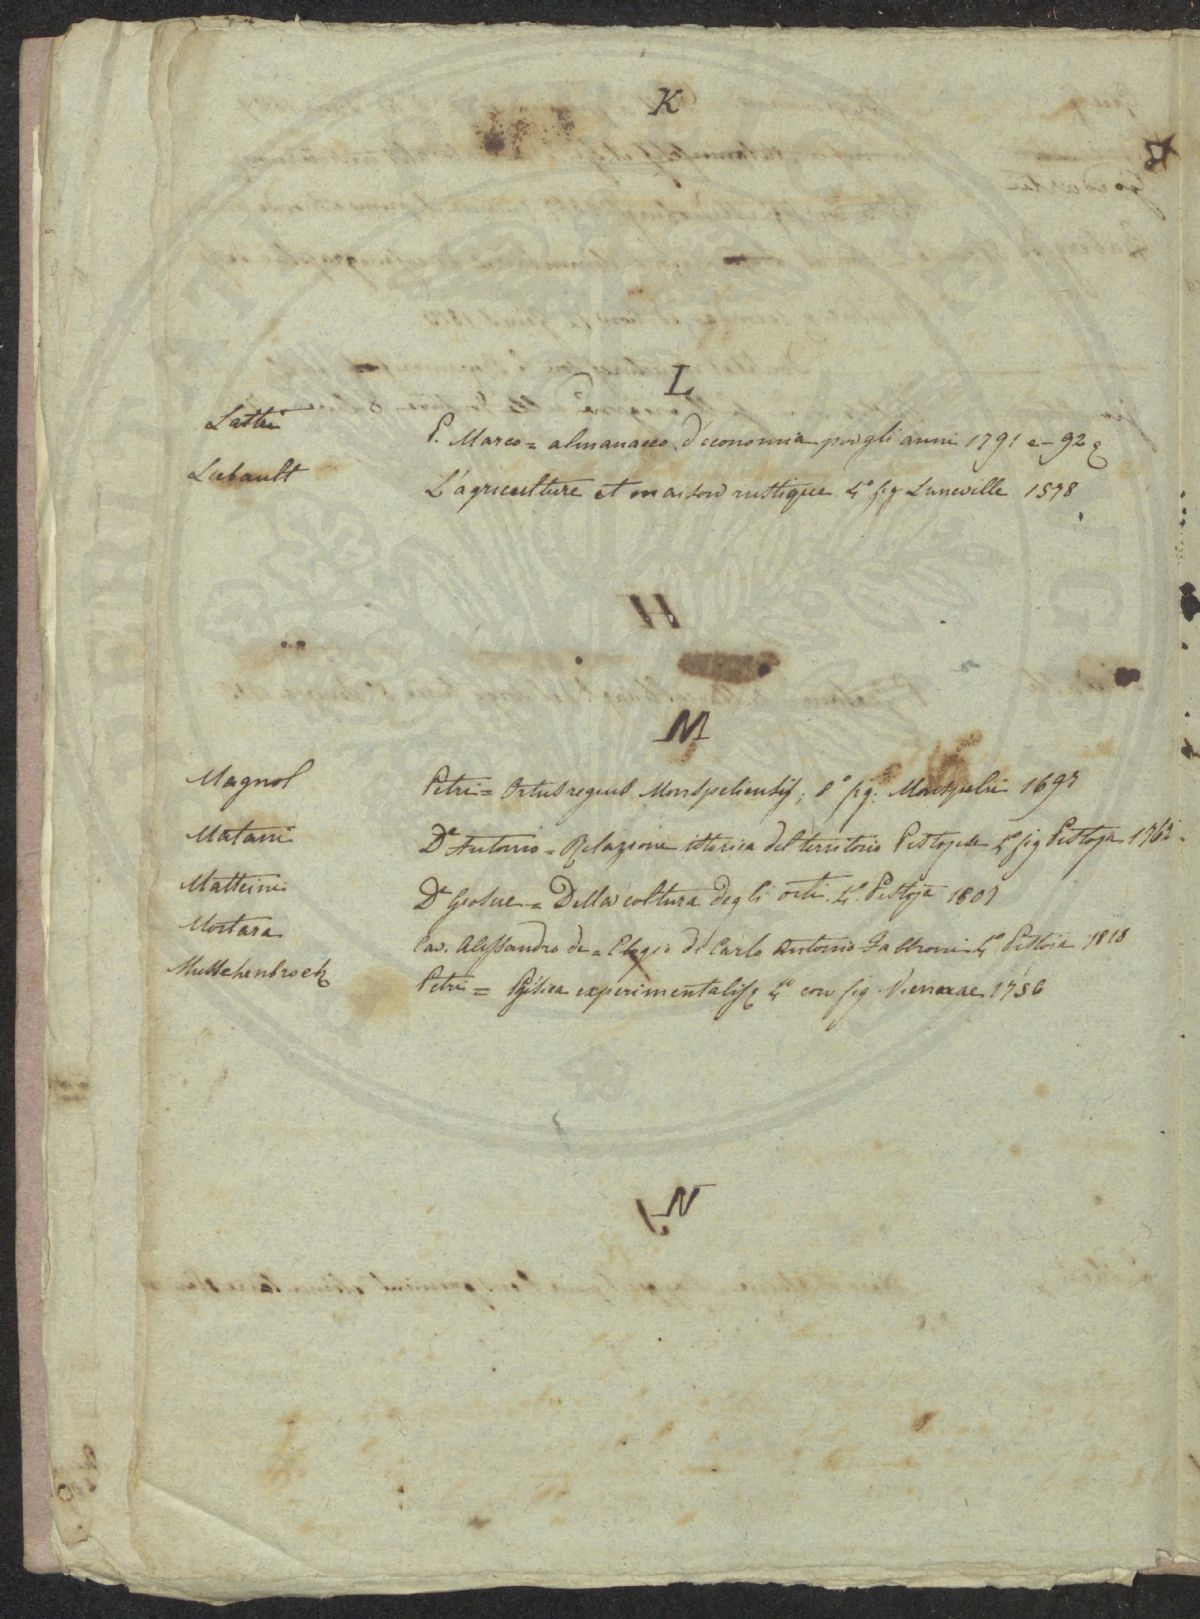 K
L
Lastri P. Marco = almanacco d'economia per gli anni 1791 e 92
Liebault L'agriculture et maison rustique 4.° fig Luneville 1578
M
Magnol Petri = Ortus regius Monspeliensis, 8° fig. Monspelii 1697
Matani Dr Antonio = Relazione istorica del territorio Pistojese 4° fig Pistoja 1762
Matteini Dr Giosue = Della coltura degli orti. 4.° Pistoja 1807
Mortara Cav. Alessandro de = Elogio di Carlo Antonio Fabbroni 4° Pistoia 1818
Musschenbroek Petri = experimentalis 4° con fig. Viennae 1756
N